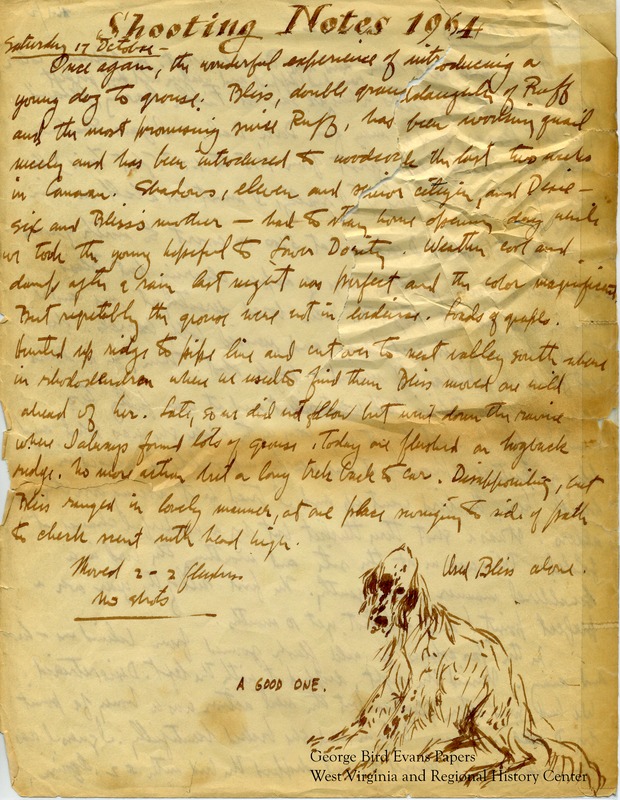 Shooting Notes 1964
Saturday 17 October -
Once again, the wonderful experience of introducing a
young dog to grouse. Bliss, double granddaughter of Ruff
and the most promising since Ruff, has been working quail
nicely and has been introduced to woodcock the last two weeks
in Canaan. Shadows, eleven and senior citizen, and Dixie -
six and Bliss's mother - had to stay home opening day while
we took the young hopeful to Lower Dority. Weather cool and
damp after a rain last night was perfect and the color magnificent.
But regrettably the grouse were not in evidence. Loads of grapes.
Hunted up ridge to pipe line and cut over to next valley south
in rhododendron where we used to find them Bliss moved one wild
ahead of her. Late, so we did not follow but went down the ravine
where I always found lots of grouse. Today one flushed on hogback
ridge. No more action but a long trek back to car. Disappointing, but
Bliss ranged in lovely manner, at one place swinging to side of path
to check scent with head high.
Moved 2 - 2 flushes Used Bliss alone.
No shots
A GOOD ONE.
George Bird Evans Papers
West Virginia and Regional History Center